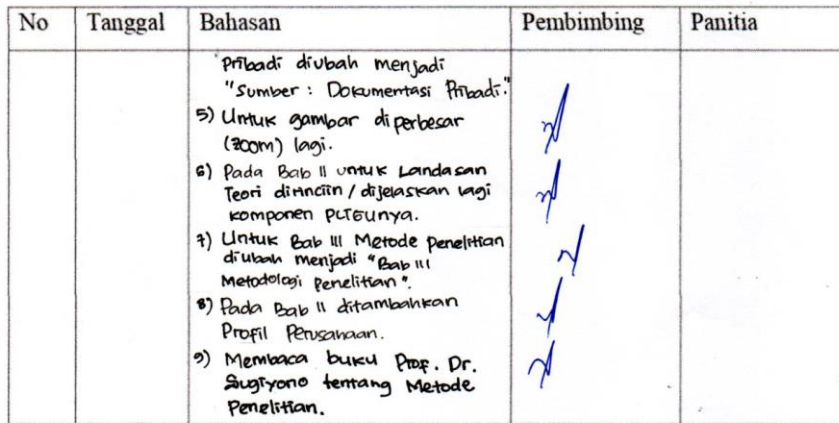 No Tanggal Bahasan Pembimbing Panitia
Pribadi diubah menjadi
"Sumber : Dokumentasi Pribadi."
5) Untuk gambar diperbesar
(zoom) lagi.
6) Pada Bab II untuk Landasan
Teori dirinciin / dijelaskan lagi
komponen PLTGUnya.
7) Untuk Bab III Metode penelitian
diubah menjadi "Bab III
Metodologi Penelitian".
8) Pada Bab II ditambahkan
Profil Perusahaan.
9) Membaca buku Prof. Dr.
Sugiyono tentang Metode
Penelitian.